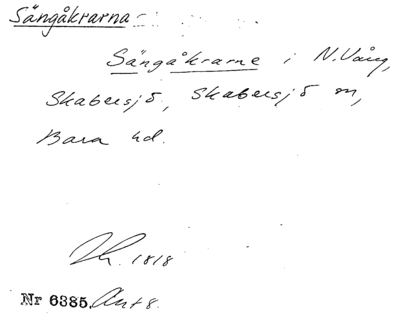 Sängåkrarna
Sängåkrarne i N. Vång,
Skabersjö, Skabersjö sn,
Bara hd.
1818
Nr 6385. Akt 8.